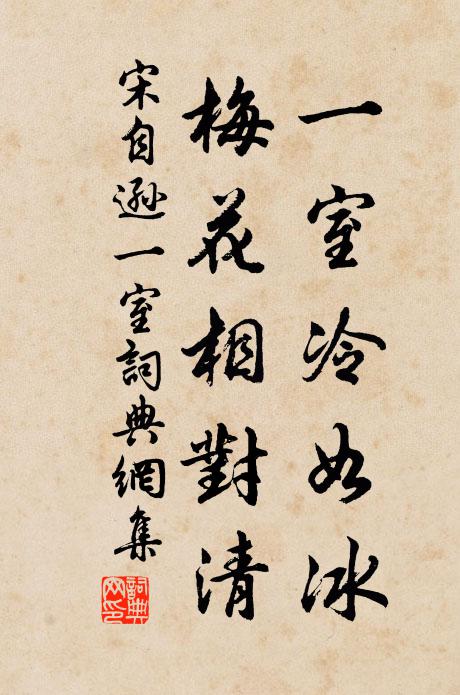 一室冷如冰
梅花相對清
宋自遜一室詞典網集
詞典網印